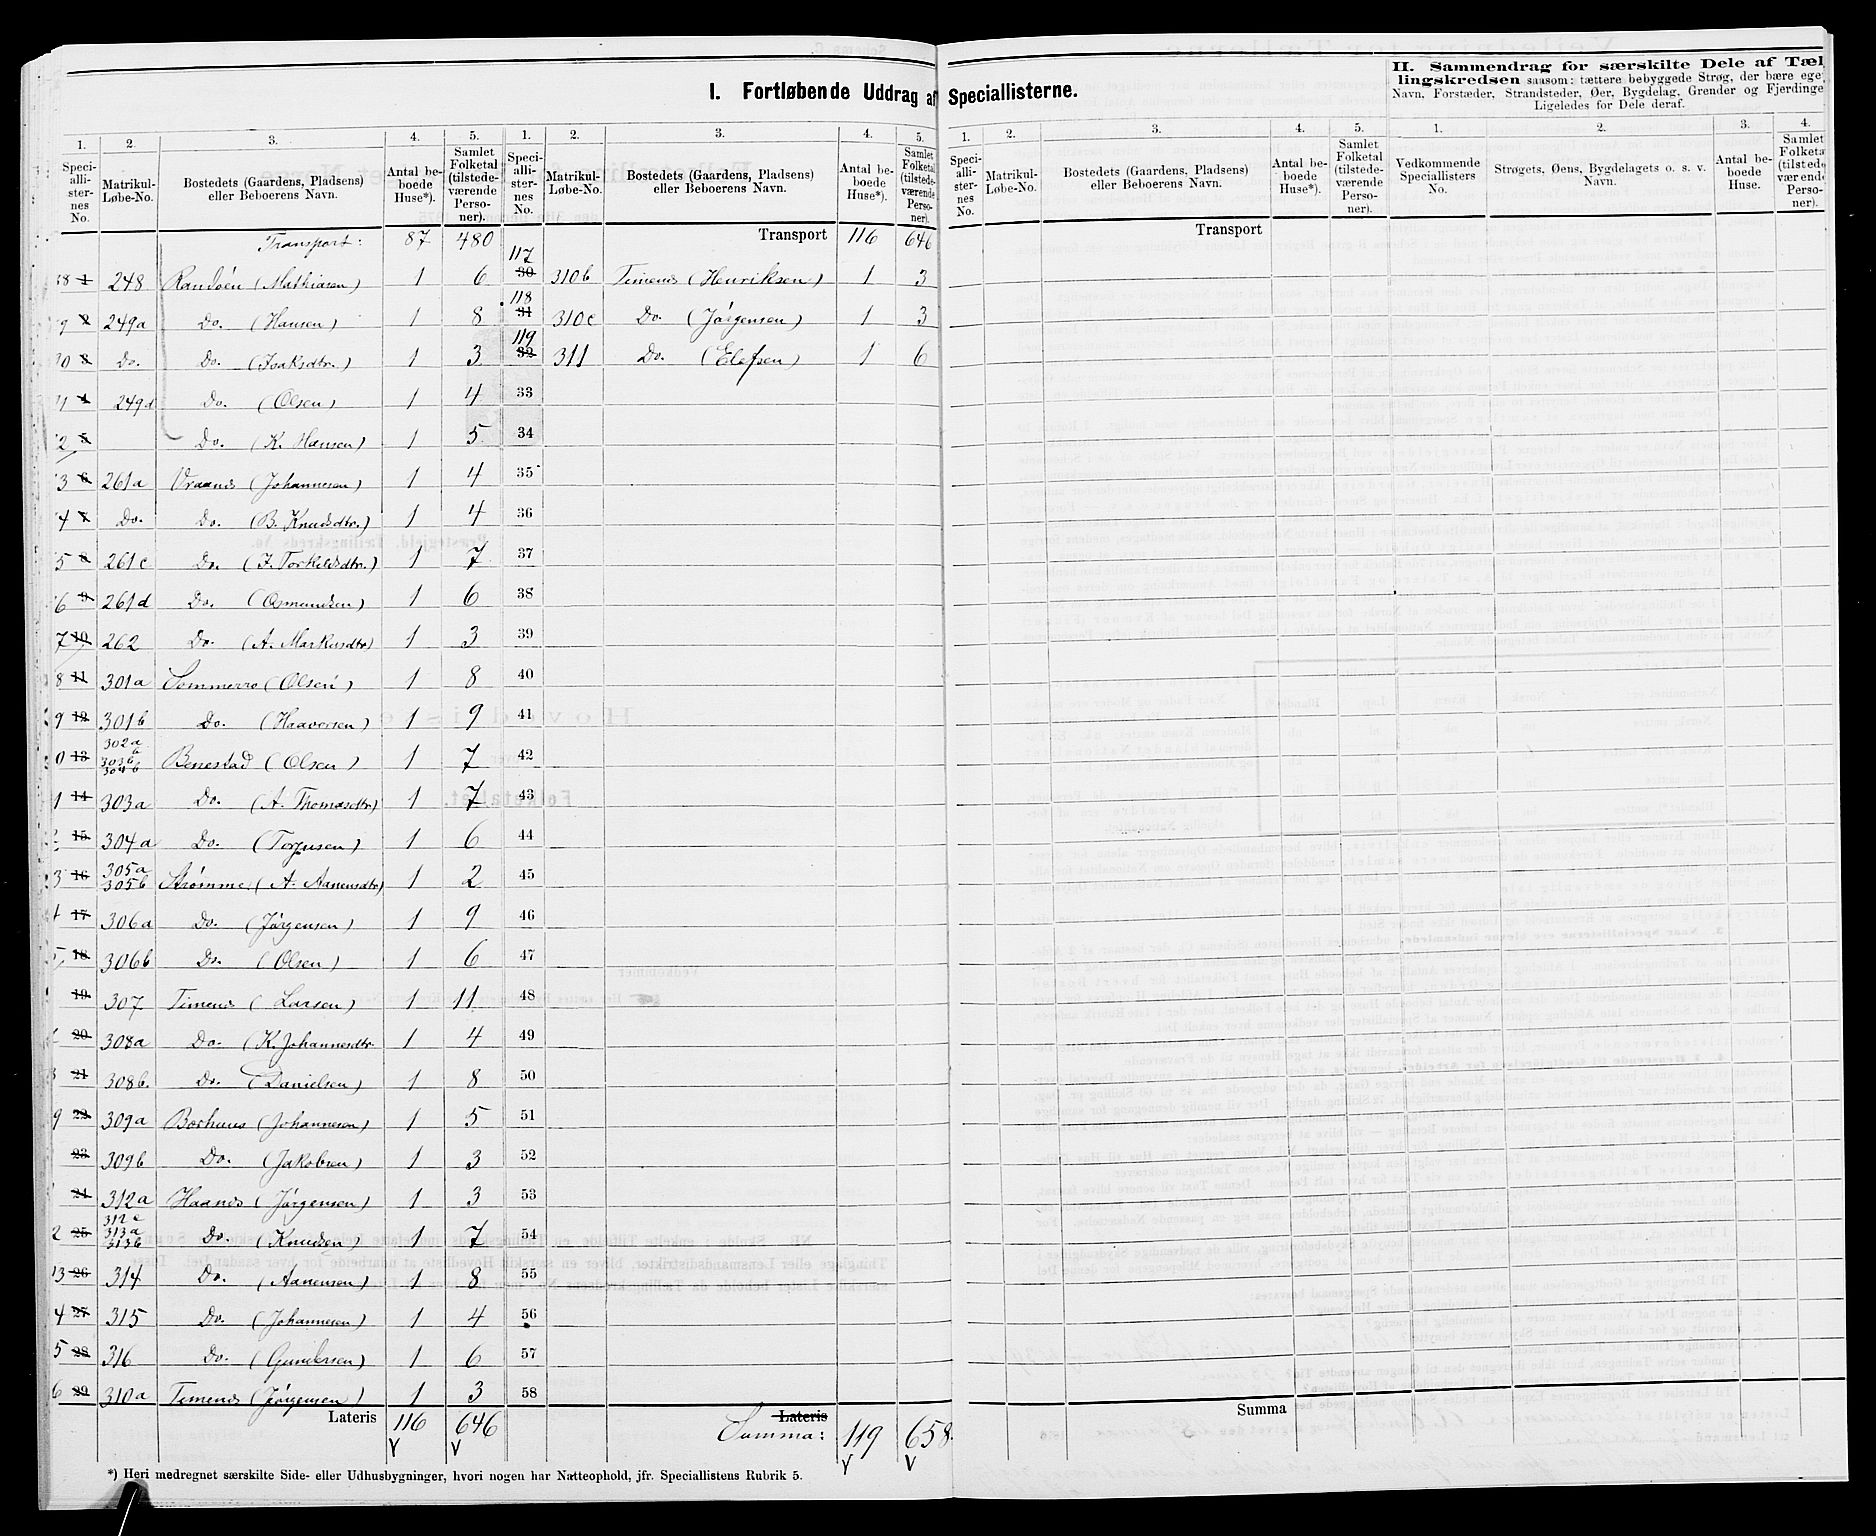 I. Fortløbende Uddrag af Speciallisterne.
II. Sammendrag for særskilte Dele af Tæl
lingskredsen saasom: tættere bebyggede Strøg, der bære ege
Navn, Forstæder, Strandsteder, Øer, Bygdelag, Grender og Fjerdinge
Ligeledes for Dele deraf.
1. 2. 3. 4. 5. 1. 2. 3. 4. 5. 1. 2. 3. 4. 5. 1. 2. 3. 4.
Speciallisternes No. Matrikul-Løbe-No. Bostedets (Gaardens, Pladsens) eller Beboerens Navn. Antal beboede Huse*). Samlet Folketal (tilstedeværende Personer).
Speciallisternes No. Matrikul-Løbe-No. Bostedets (Gaardens, Pladsens) eller Beboerens Navn. Antal beboede Huse*). Samlet Folketal (tilstedeværende Personer).
Speciallisternes No. Matrikul-Løbe-No. Bostedets (Gaardens, Pladsens) eller Beboerens Navn. Antal beboede Huse*). Samlet Folketal (tilstedeværende Personer).
Vedkommende Speciallisters No. Strøgets, Øens, Bygdelagets o. s. v. Antal beboede Huse. Samlet Folketa (tilsted værend Personer).
Transport: 87 480
8 1 248 Randøen (Mathiasen) 1 6
9 2 249a Do. (Hansen) 1 8
0 3 Do. Do. (Isaksdtr.) 1 3
1 4 249d Do. (Olsen) 1 4
2 5 Do. (K. Hansen) 1 5
3 6 261a Vraanes (Johannesen) 1 4
4 7 Do. Do. (B. Knudsdtr.) 1 4
5 8 261c Do. (I. Torkildsdtr.) 1 7
6 9 261d Do. (Osmundsen) 1 6
7 10 262 Do. (A. Markusdtr) 1 3
8 11 301a Sommerro (Olsen) 1 8
9 12 301b Do. (Haaversen) 1 9
0 13 302a 303b 304b Benestad (Olsen) 1 7
1 14 303a Do. (A. Thomasdtr) 1 7
15 304a Do. (Torjusen) 1 6
3 16 305a 305b Strømme (A. Aanensdtr) 1 2
17 306a Do. (Jørgensen) 1 9
5 18 306b Do. (Olsen) 1 6
19 307 Timenes (Larsen) 1 11
20 308a Do. (K. Johannesdtr 1 4
21 308b. Do. (Danielsen) 1 8
9 22 309a Borhuus (Johannesen) 1 5
23 309b Do. (Jakobsen) 1 3
24 312a Haanes (Jørgensen) 1 3
2 25 312c 313a 313b Do. (Knudsen) 1 7
13 26 314 Do. (Aanensen) 1 8
4 27 315 Do. (Johannesen) 1 4
5 28 316 Do. (Gundersen) 1 6
6 29 310a Timenes (Jørgensen) 1 3
Lateris 116 646
Transport 116 646
117 30 310b Timenes (Henriksen) 1 3
118 31 310c Do. (Jørgensen) 1 3
119 32 311 Do. (Elefsen) 1 6
33
34
35
36
37
38
39
40
41
42
43
44
45
46
47
48
49
50
51
52
53
54
55
56
57
58
Lateris
Summa: 119 658.
Transport
Summa
*) Heri medregnet særskilte Side- eller Udhusbygninger, hvori nogen har Natteophold, jfr. Speciallistens Rubrik 5.